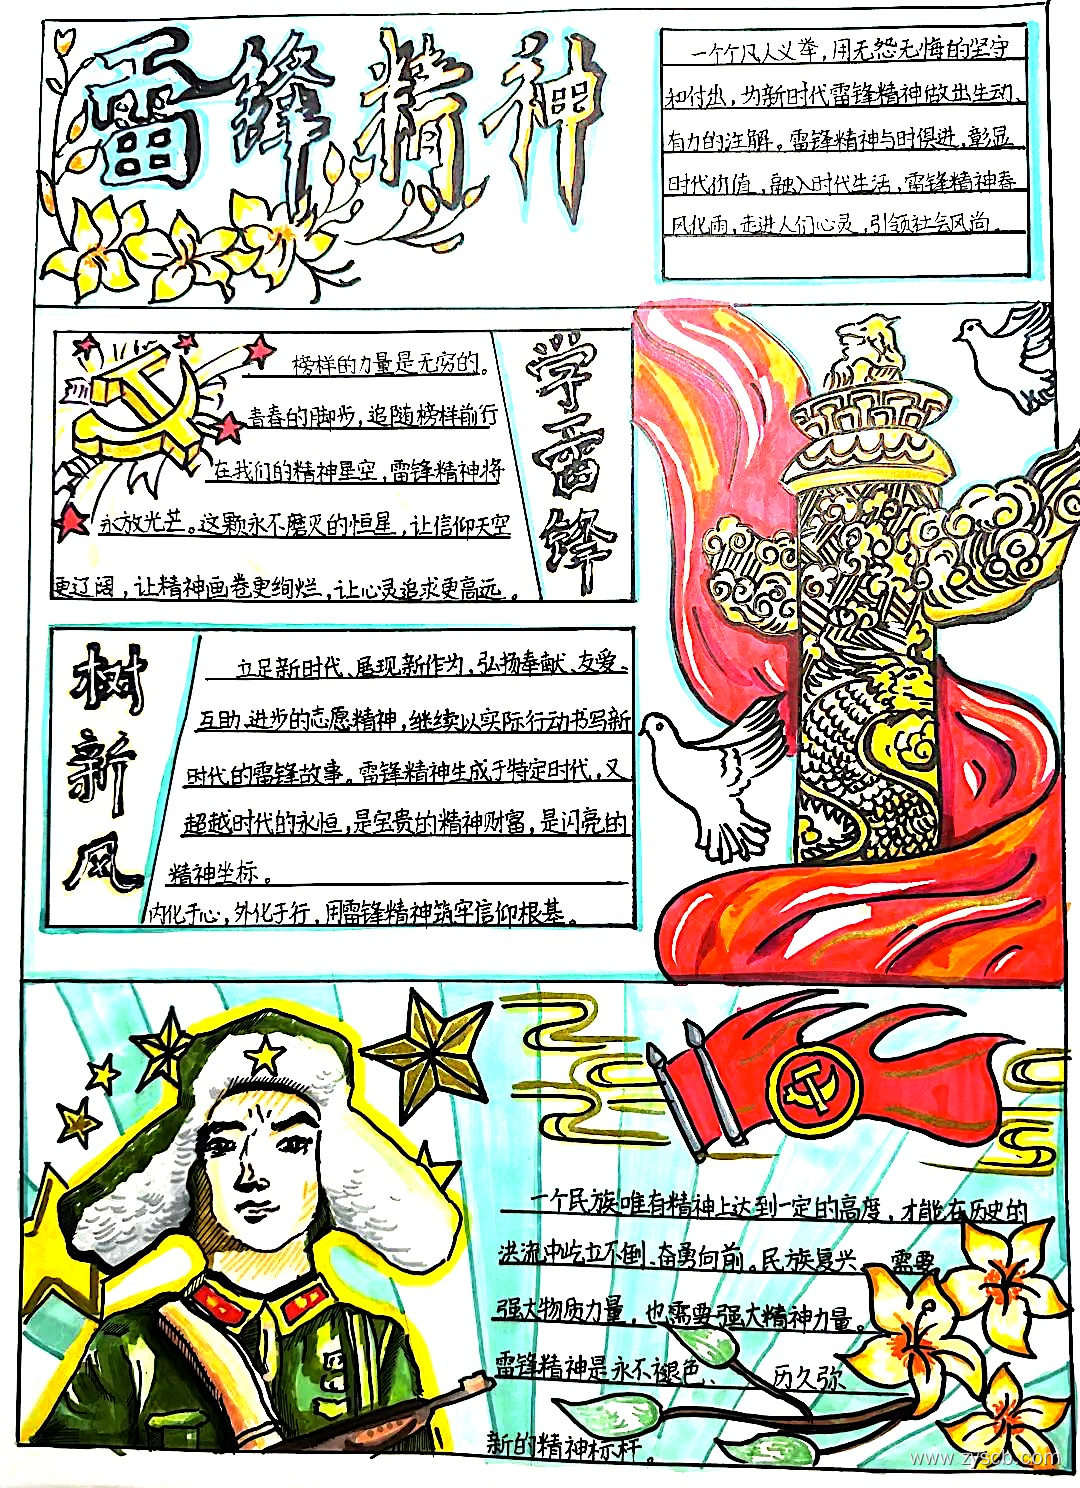 雷锋精神
一个个凡人义举，用无怨无悔的坚守
和付出，为新时代雷锋精神做出生动、
有力的注解。雷锋精神与时俱进，彰显
时代价值，融入时代生活，雷锋精神春
风化雨，走进人们心灵，引领社会风尚。
学雷锋
榜样的力量是无穷的。
青春的脚步，追随榜样前行
在我们的精神星空，雷锋精神将
永放光芒。这颗永不磨灭的恒星，让信仰天空
更辽阔，让精神画卷更绚烂，让心灵追求更高远。
树新风
立足新时代、展现新作为，弘扬奉献、友爱、
互助、进步的志愿精神，继续以实际行动书写新
时代的雷锋故事。雷锋精神生成于特定时代，又
超越时代的永恒，是宝贵的精神财富，是闪亮的
精神坐标。
内化于心，外化于行，用雷锋精神筑牢信仰根基。
一个民族唯有精神上达到一定的高度，才能在历史的
洪流中屹立不倒、奋勇向前。民族复兴，需要
强大物质力量，也需要强大精神力量。
雷锋精神是永不褪色、历久弥
新的精神标杆。
www.zyscb.com